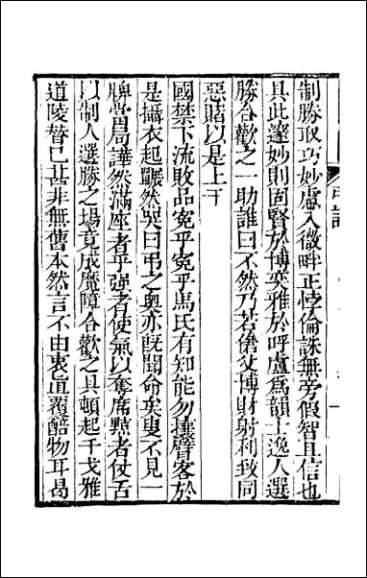 制勝取巧妙慮入微畔正悖倫誅無旁假智且信也
具此邃妙則固賢於博奕雅於呼盧為韻士逸人選
勝合歡之一助誰曰不然乃若傖父博財射利致同
惡賭以是上干
國禁下流敗品寃乎寃乎馬氏有知能勿攘臂客於
是攝衣起囅然笑曰弔之奧亦旣聞命矣獨不見一
牌當局譁然滿座者乎强者使氣以奪席黠者仗舌
以制人選勝之塲竟成魔障合歡之具頓起干戈雅
道陵替已甚非無舊本然言不由衷直覆醅物耳曷